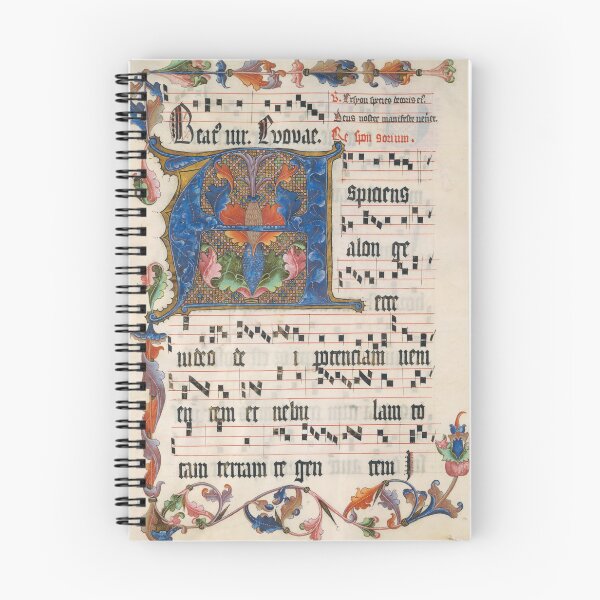 Beat9 vir. Evovae.
V. Ex syon species decoris ei9.
Deus noster manifeste veniet.
Re spon sorium.
Aspiciens
a lon ge
ecce
video de i potenciam veni
en tem et nebu lam to
tam terram te gen tem I